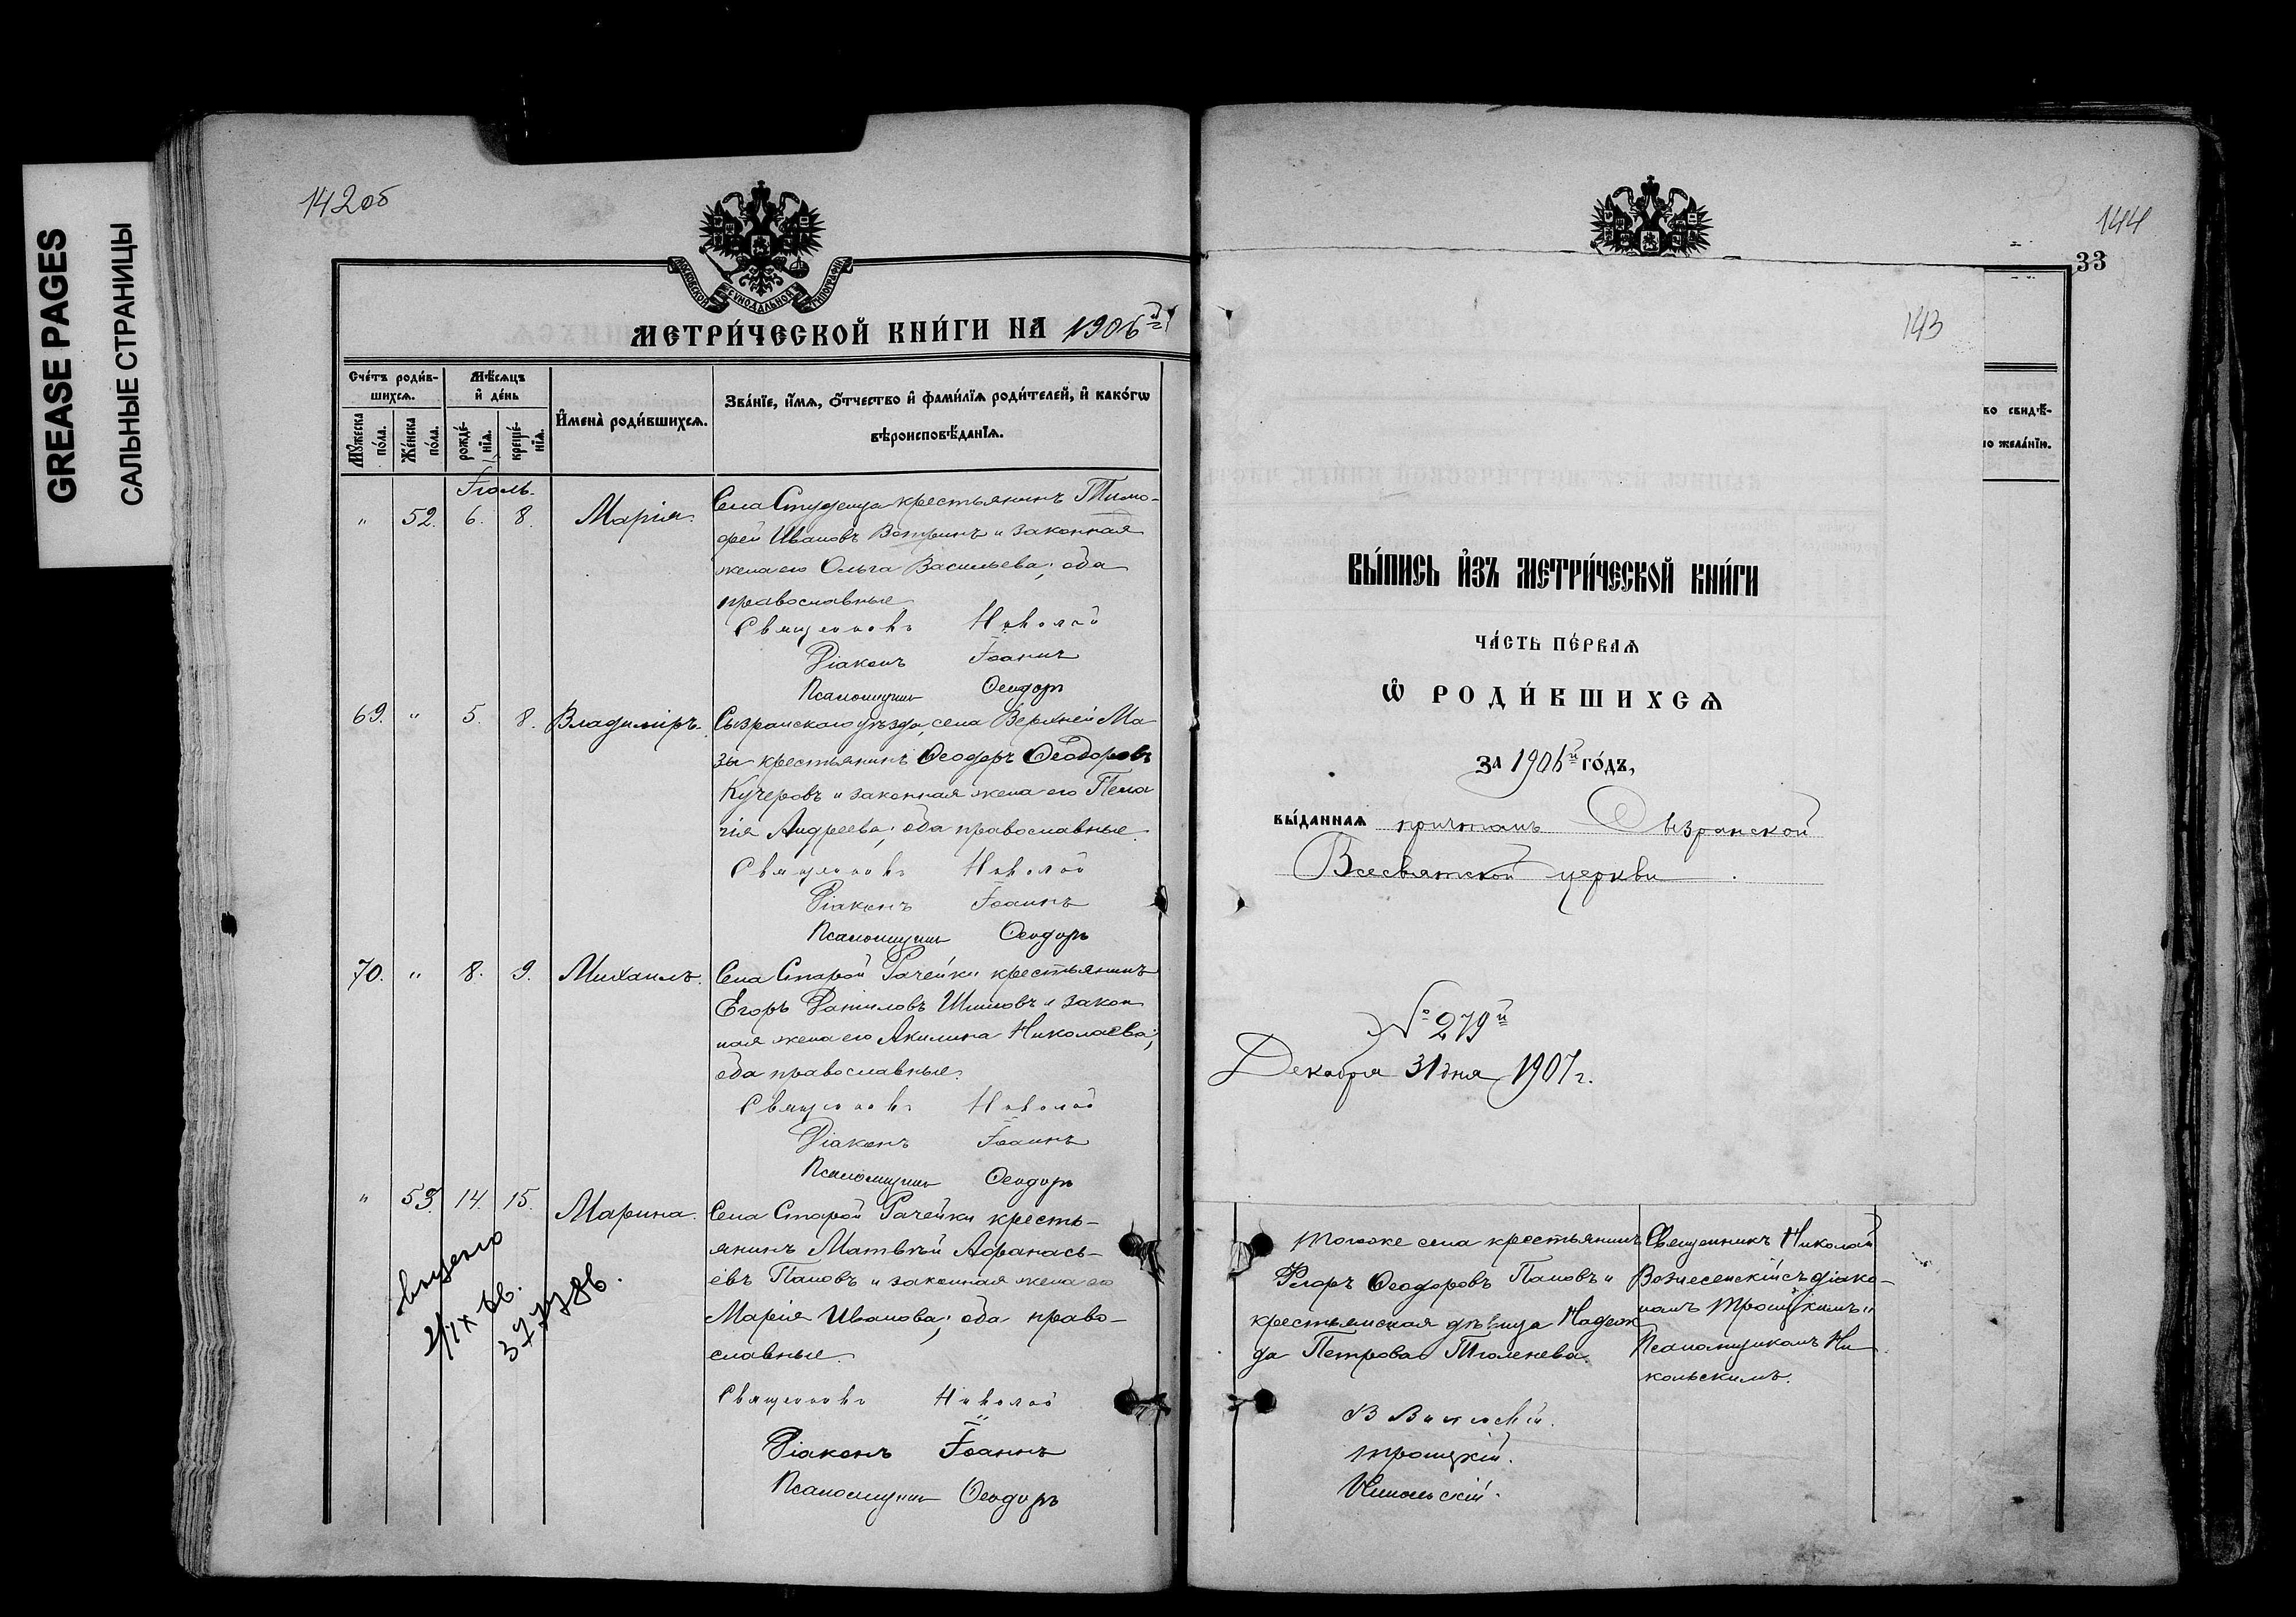 GREASE PAGES
САЛЬНЫЕ СТРАНИЦЫ
142 об
МОСКОВСКОЙ СѴНОДАЛЬНОЙ ТИПОГРАФІИ
МЕТРИ́ЧЕСКОЙ КНИ́ГИ НА 1906й
Сче́тъ роди́в-
шихсѧ.
Мѣ́сѧцъ
и҆ де́нь
Мꙋ́жеска
по́ла.
Же́нска
по́ла.
рожде́-
нїѧ.
креще́-
нїѧ.
И҆мена̀ роди́вшихсѧ.
Зва́нїе, и҆́мѧ, ѻ҆́тчество и҆ фами́лїѧ роди́телей, и҆ како́гѡ
вѣроисповѣ́данїѧ.
Іюль.
" 52. 6. 8. Марія. Села Студенца крестьянинъ Тимо-
фей Ивановъ Вотринъ и законная
жена его Ольга Васильева; оба
православные
Священникъ Николай
Діаконъ Іоаннъ
Псаломщикъ Ѳеодоръ
69. " 5. 8. Владиміръ. Сызранскаго уѣзда, села Верхней Ма-
зы крестьянинъ Ѳеодоръ Ѳеодоровъ
Кучеровъ и законная жена его Пела
гія Андреева; оба православные.
Священникъ Николай
Діаконъ Іоаннъ
Псаломщикъ Ѳеодоръ
70. " 8. 9. Михаилъ. Села Старой Рачейки крестьянинъ
Егоръ Даниловъ Шиловъ и закон
ная жена его Акилина Николаева;
оба православные.
Священникъ Николай
Діаконъ Іоаннъ
Псаломщикъ Ѳеодоръ
" 53. 14. 15. Марина. Села Старой Рачейки кресть-
янинъ Матвѣй Аѳанась-
евъ Пановъ и законная жена его
Марія Иванова; оба право-
славные.
Священникъ Николай
Діаконъ Іоаннъ
Псаломщикъ Ѳеодоръ
144
33
во свидѣ-
по жела́нїю.
143
ВЫ́ПИСЬ И҆ЗЪ МЕТРИ́ЧЕСКОЙ КНИ́ГИ
ЧА́СТЬ ПЕ́РВАѦ
Ѡ҆ РОДИ́ВШИХСѦ
ЗА 1906й ГО́ДЪ,
ВЫ́ДАННАѦ причтомъ Сызранской
Всесвятской церкви
№ 279й
Декабря 31 дня 1907 г.
Тогоже села крестьянинъ
Ѳеодоровъ Пановъ и
крестьянская дѣвица Надеж
да Петрова Тюленева.
Священникъ Николай
Вознесенскій съ діако-
номъ Троицкимъ и
Псаломщикомъ Ни
кольскимъ.
Троицкій.
Никольскій.